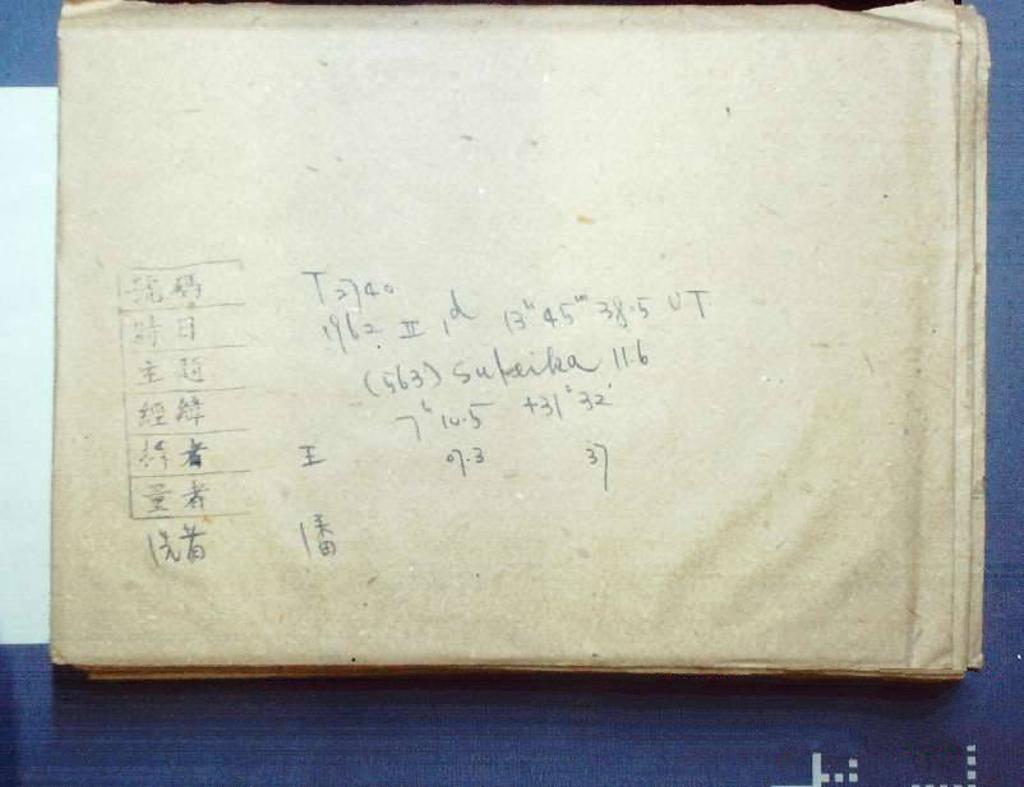 號碼 T3740
時日 1962 II 1d 13h 45m 38.5 UT
主題 (563) Suleika 11.6
經緯 7h 10.5 +31° 32'
攝者 王 07.3 37
量者
洗者 潘